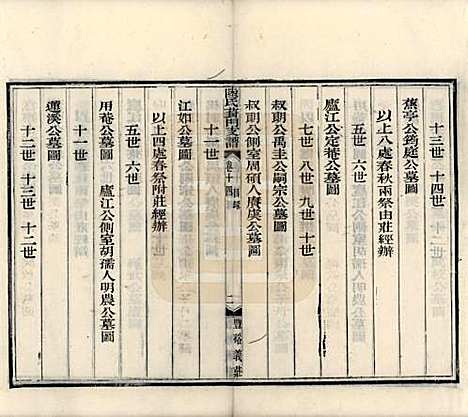 十三世　十四世
蕉亭公筠庭公墓圖
以上八處春秋兩祭由莊經辦
五世　六世
廬江公定菴公墓圖
七世　八世　九世　十世
叔明公禹圭公嗣宗公墓圖
叔明公側室周碩人賡虞公墓圖
陶氏葑門支譜　卷十四　目錄　二　豐裕義莊
十一世
江如公墓圖
以上四處春祭附莊經辦
五世　六世
用菴公墓圖　廬江公側室胡孺人明農公墓圖
十一世
蓮溪公墓圖
十二世　十三世　十二世